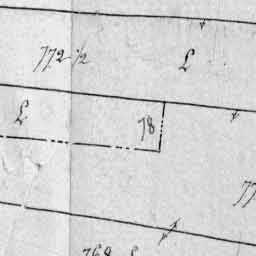 772 1/2 £
£ 78
77
768 £